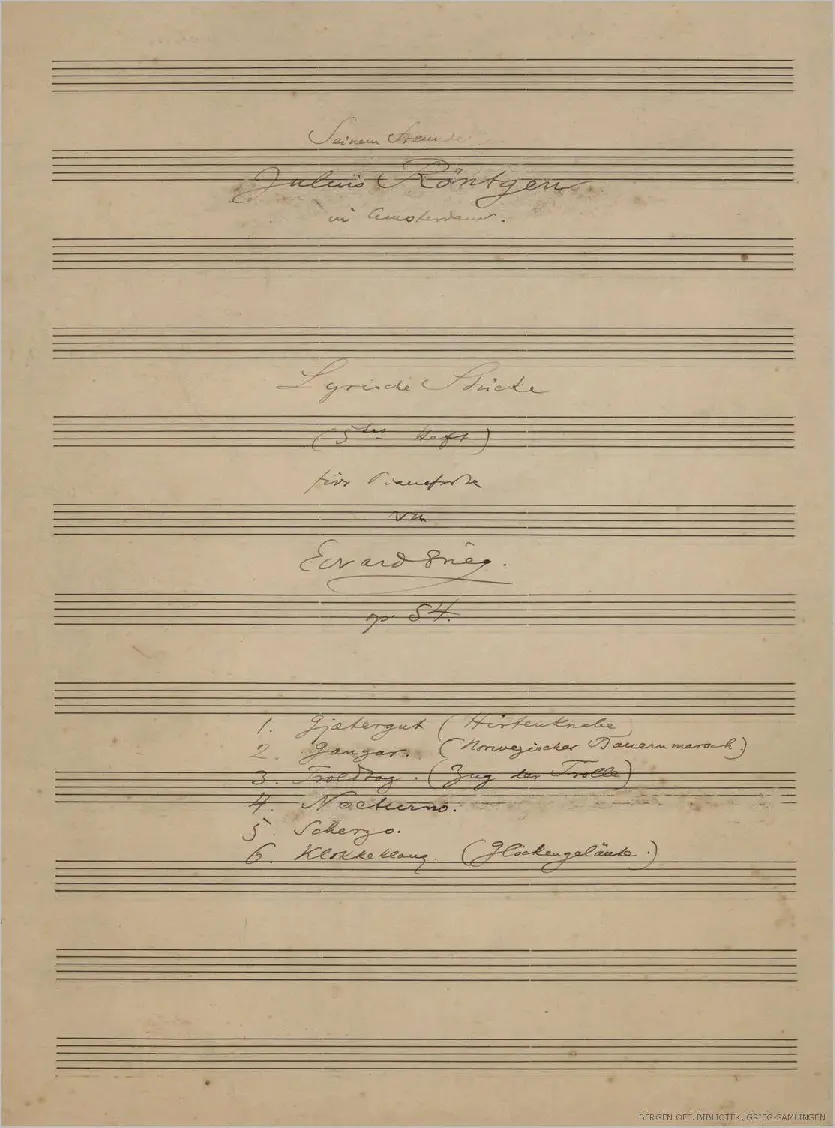 Seinem Freunde
Julius Röntgen
in Amsterdam.
Lyrische Stücke
(5tes Heft)
für Pianoforte
von
Edvard Grieg.
op 54.
1. Gjætergut (Hirtenknabe
2. Gangar. (Norwegischer Bauernmarsch)
3. Troldtog. (Zug der Trolle)
4. Notturno.
5. Scherzo.
6. Klokkeklang. (Glockengeläute.)
BERGEN OFF. BIBLIOTEK, GRIEG-SAMLINGEN